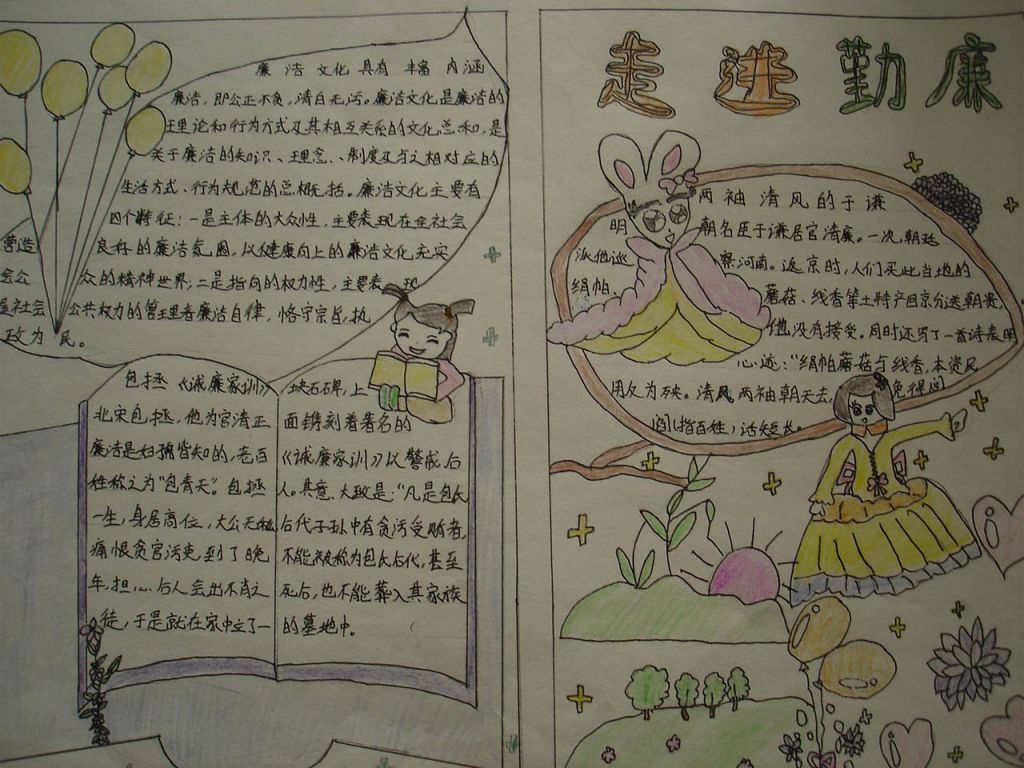 廉洁文化具有丰富内涵
廉洁，即公正不贪，清白无污。廉洁文化是廉洁的
理论和行为方式及其相互关系的文化总和，是
关于廉洁的知识、理念、制度及与之相对应的
生活方式、行为规范的总概括。廉洁文化主要有
四个特征：一是主体的大众性，主要表现在全社会
营造良好的廉洁氛围，以健康向上的廉洁文化充实
会公众的精神世界；二是指向的权力性，主要表现
社会公共权力的管理者廉洁自律，恪守宗旨，执
政为民。
包拯《诫廉家训》
北宋包拯，他为官清正
廉洁是妇孺皆知的，老百
姓称之为“包青天”。包拯
一生，身居高位，大公无私
痛恨贪官污吏，到了晚
年，担心后人会出不肖之
徒，于是就在家中立了一
块石碑，上
面镌刻着著名的
《诫廉家训》以警戒后
人。其意大致是：“凡是包氏
后代子孙中有贪污受贿者，
不能被称为包氏后代，甚至
死后，也不能葬入其家族
的墓地中。
走进勤廉
两袖清风的于谦
明朝名臣于谦居官清廉。一次，朝廷
派他巡察河南。返京时，人们买此当地的
绢帕、蘑菇、线香等土特产回京分送朝贵，
他没有接受。同时还写了一首诗表明
心迹：“绢帕蘑菇与线香，本资民
用反为殃。清风两袖朝天去，免得闾
阎指百姓，话短长。